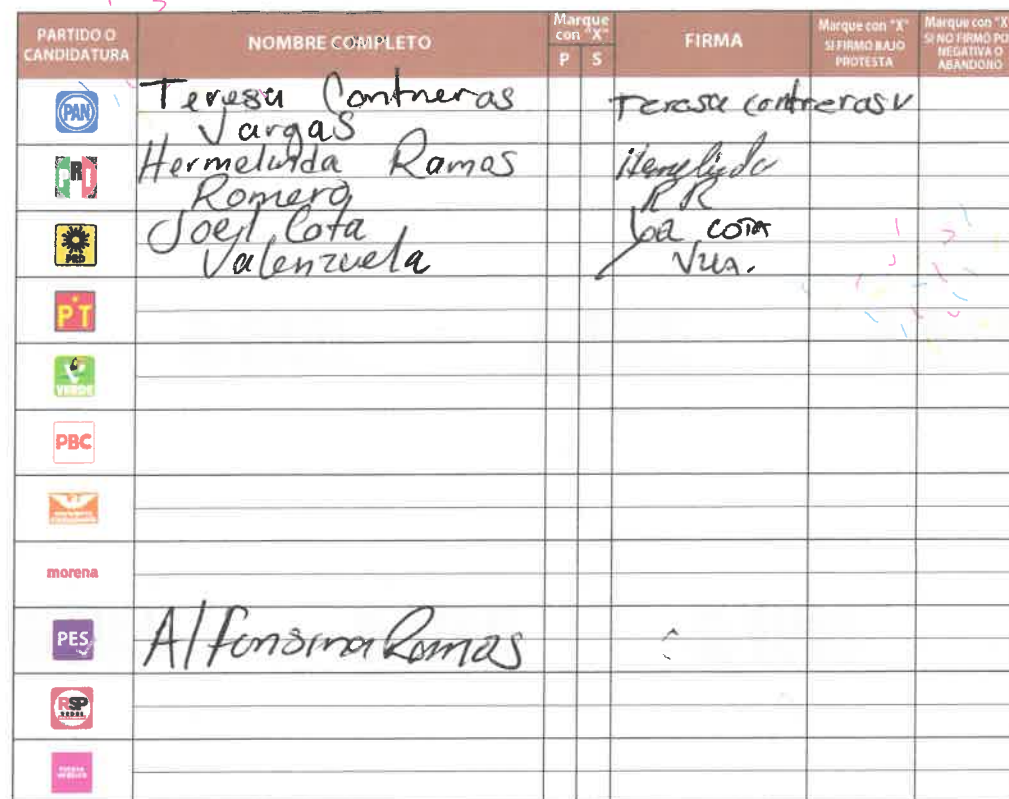 PARTIDO O CANDIDATURA
NOMBRE COMPLETO
Marque con "X"
P S
FIRMA
Marque con "X" SI FIRMO BAJO PROTESTA
Marque con "X SI NO FIRMO PO NEGATIVA O ABANDONO
PAN
Teresa Contreras
Vargas
Teresa contreras V
PRI
Hermelinda Ramos
Romero
Hermelinda
RR
PRD
Joel Cota
Valenzuela
COTA
PT
VERDE
PBC
morena
PES
Alfonsina Ramos
RSP